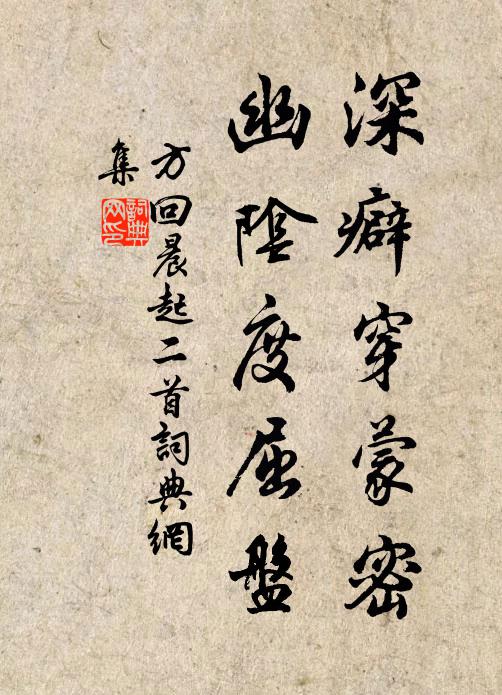 深癖穿蒙密
幽陰度屈盤
方回晨起二首詞典網
集
詞典網印